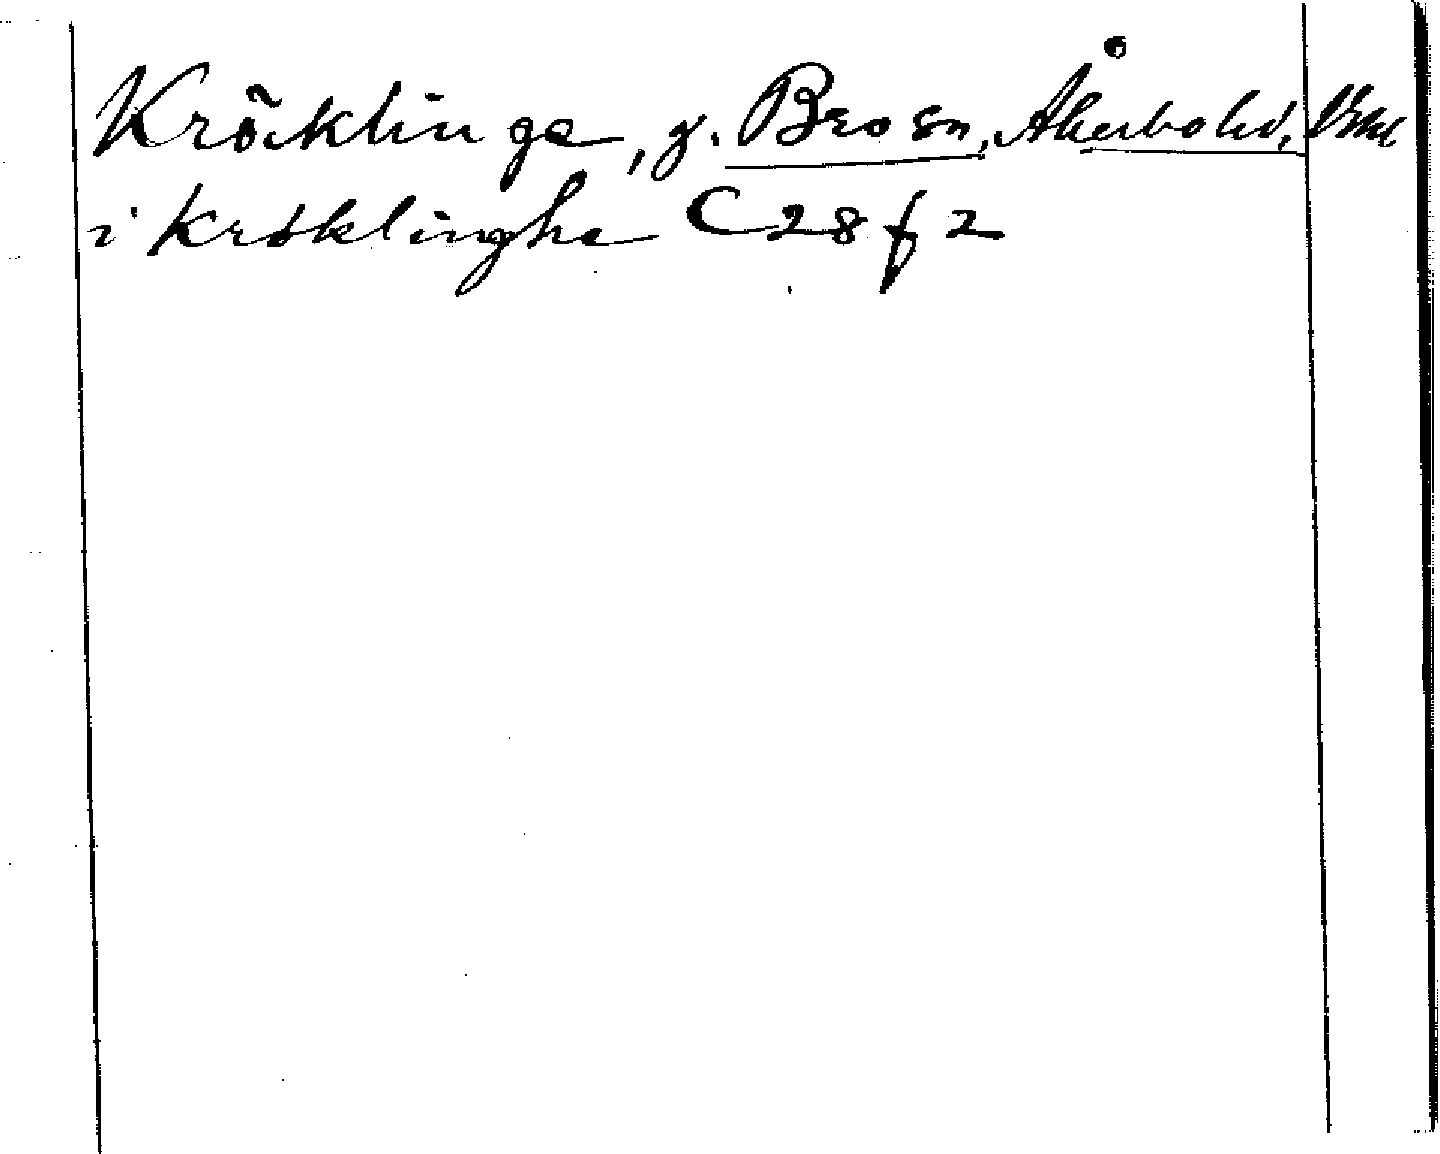 Kröcklinge, g. Bro sn, Åkerbo hd,
i Krøklinghe C 28 f 2